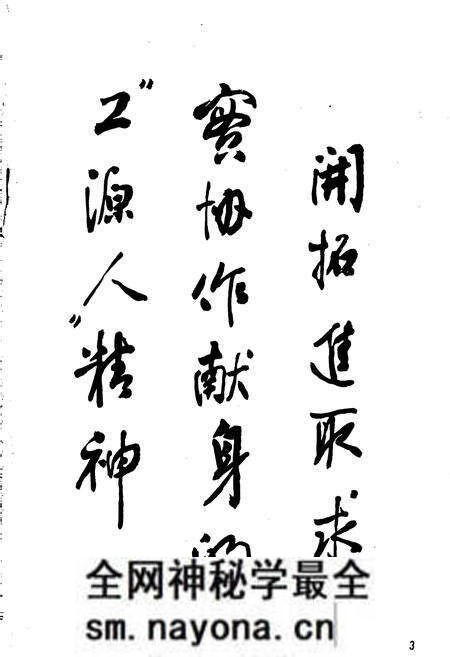 開拓進取求
實协作献身的
“工源人”精神
全网神秘学最全
sm.nayona.cn
3